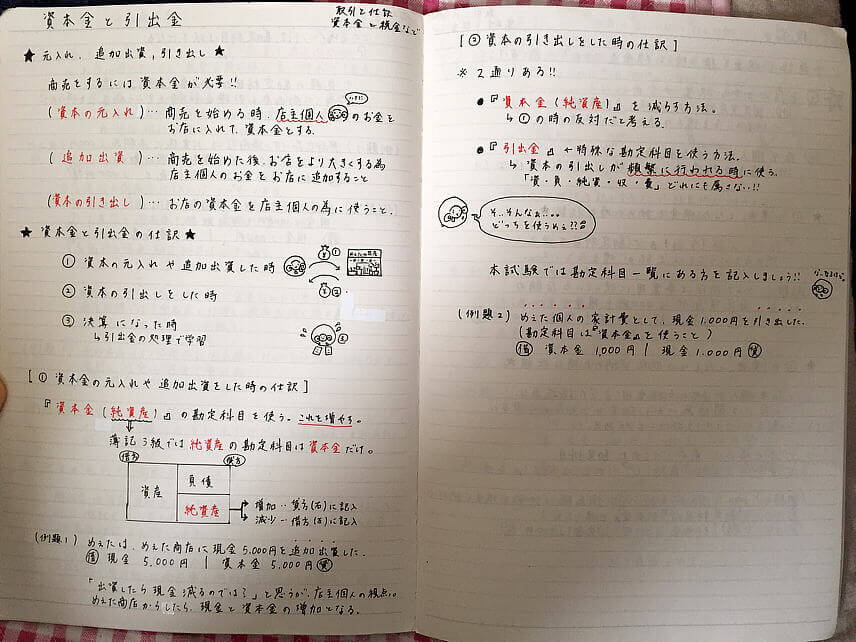 資本金と引出金
取引と仕訳
資本金と税金など
★ 元入れ、追加出資、引き出し ★
商売をするには資本金が必要!!
(資本の元入れ)… 商売を始める時、店主個人のお金を
お店に入れて、資本金とする。
(追加出資)… 商売を始めた後、お店をより大きくする為
店主個人のお金をお店に追加すること
(資本の引き出し)… お店の資本金を店主個人の為に使うこと。
★ 資本金と引出金の仕訳 ★
① 資本の元入れや追加出資した時
② 資本の引出しをした時
③ 決算になった時
↳引出金の処理で学習
①
②
[① 資本金の元入れや追加出資をした時の仕訳]
『資本金(純資産)』の勘定科目を使う。これを増やす。
簿記3級では純資産の勘定科目は資本金だけ。
借方 貸方
資産 負債
純資産
増加…貸方(右)に記入
減少…借方(左)に記入
(例題1) めぇたは、めぇた商店に現金5,000円を追加出資した。
借 現金 5,000円 | 資本金 5,000円 貸
「出資したら現金減るのでは?」と思うが、店主個人の視点。
めぇた商店からしたら、現金と資本金の増加となる。
[② 資本の引き出しをした時の仕訳]
※ 2通りある!!
● 『資本金(純資産)』を減らす方法。
↳ ①の時の反対だと考える。
● 『引出金』←特殊な勘定科目を使う方法。
↳ 資本の引出しが頻繁に行われる時に使う。
「資・負・純資・収・費」どれにも属さない!!
そ、そんなぁ…
どっちを使うめぇ??
本試験では勘定科目一覧にある方を記入しましょう!!
(例題2) めぇた個人の家計費として、現金1,000円を引き出した。
(勘定科目は『資本金』を使うこと)
借 資本金 1,000円 | 現金 1,000円 貸